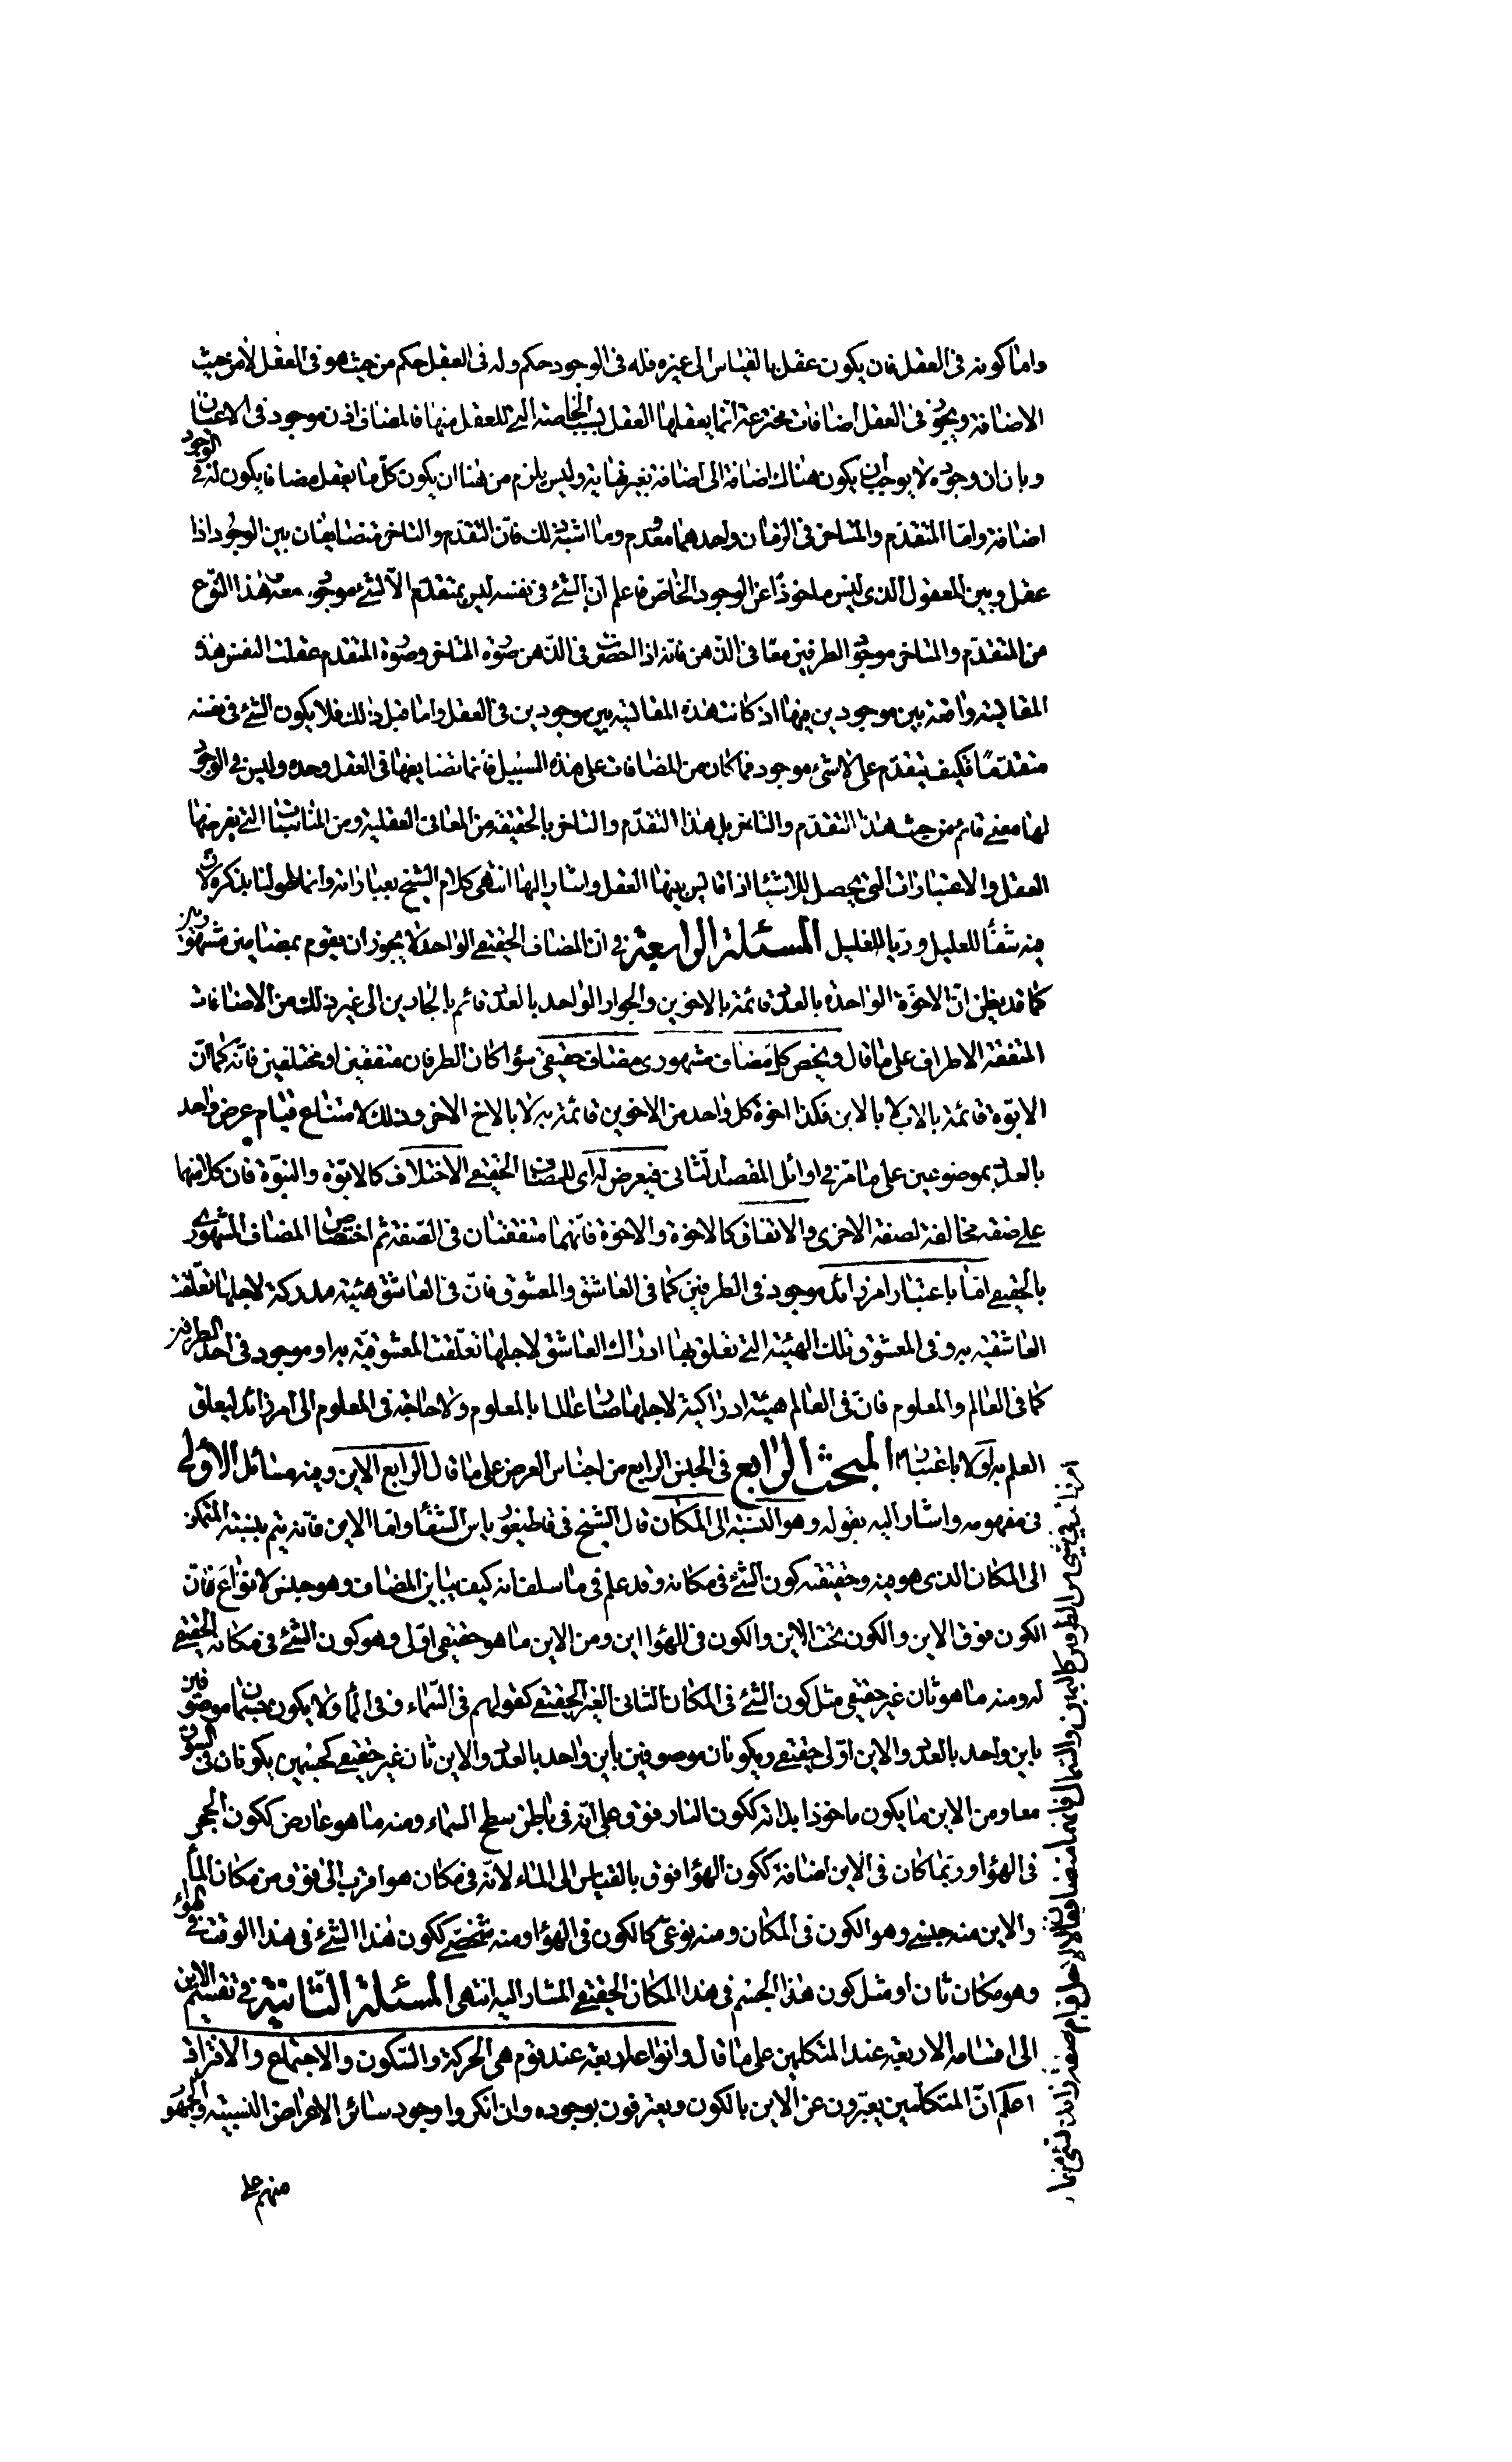 واما كونه فى العقل فان يكون عقل بالقياس الى غيره فله فى الوجود حكم وله فى العقل حكم من حيث هو فى العقل لا من حيث
الاضافة ويجوز فى العقل اضافات مخترعة انما يعقلها العقل بسبب الخاصة التى للعقل منها فالمضاف اذن موجود فى الاعيان
وبان ان وجوده لا يوجب ان يكون هناك اضافة الى اضافة بغير نهاية وليس يلزم من هنا ان يكون كلّ ما يعقل مضافا يكون له فى الوجود
اضافة واما المتقدّم والمتأخر فى الزمان واحدهما معدوم وما اشبه ذلك فانّ التقدّم والتاخر متضايفان بين الوجود اذا
عقل وبين المعقول الذى ليس ماخوذًا عن الوجود الخاصّ فاعلم انّ الشئ فى نفسه ليس بمتقدّم الّا لشئ موجود معه هذا النّوع
من المتقدّم والمتاخر موجود للطرفين معا فى الذّهن فانه اذا احضرت فى الذّهن صورة المتاخر وصورة المتقدم عقلت النفس هذه
المقايسة واقعة بين موجودين فيها اذ كانت هذه المقايسة بين موجودين فى العقل واما قبل ذلك فلا يكون الشئ فى نفسه
متقدّمًا فكيف يتقدّم على لا شئ موجود فما كان من المضافات على هذه السبيل فانما تضايفها فى العقل وحده وليس فى الوجود
لها معنى قائم من حيث هذا التقدّم والتاخر بل هذا التقدّم والتاخر بالحقيقة من المعانى العقلية ومن المناسبات التى يفرضها
العقل والاعتبارات التى يحصل للاشياء اذا قايس بينها العقل واشار اليها انتهى كلام الشيخ بعباراته وانما طولنا بذكره لانّ
فيه شفاءً للعليل وريّا للغليل المسئلة الرابعة فى انّ المضاف الحقيقى الواحد لا يجوز ان يقوم بمضافين مشهورين
كما قد يظن انّ الاخوّة الواحدة بالعدد قائمة بالاخوين والجوار الواحد بالعدد قائم بالجارين الى غير ذلك من الاضافات
المتفقة الاطراف على ما قال ويخص كل مضاف مشهورى مضاف حقيقى سواء كان الطرفان متفقين او مختلفين فانّه كما انّ
الابوّة قائمة بالاب لا بالابن فكذا اخوة كل واحد من الاخوين قائمة به لا بالاخ الاخر وذلك لامتناع قيام عرض واحد
بالعدد بموضوعين على ما مرّ فى اوائل المقصد الثانى فيعرض له اى للمضاف الحقيقى الاختلاف كالابوّة والبنوّة فان كلا منهما
على صفة مخالفة لصفة الاخرى والاتفاق كالاخوة والاخوة فانّهما متفقتان فى الصّفة ثم اختصاص المضاف المشهورى
بالحقيقى امّا باعتبار امر زائد موجود فى الطرفين كما فى العاشق والمعشوق فانّ فى العاشق هيئة مدركة لاجلها تعلّقت
العاشقية به وفى المعشوق تلك الهيئة التى تعلق بها ادراك العاشق لاجلها تعلّقت المعشوقيّة به او موجود فى احد الطرفين
كما فى العالم والمعلوم فانّ فى العالم هيئة ادراكية لاجلها صار عالما بالمعلوم ولا حاجة فى المعلوم الى امر زائد ليعلق
العلم به او لا باعتبار المبحث الرّابع فى الجنس الرابع من اجناس العرض على ما قال الرابع الاين وفيه مسائل الاولى
فى مفهومه واشار اليه بقوله وهو النسبة الى المكان قال الشيخ فى قاطيغورياس الشفاء واما الاين فانه يتم بنسبة المتمكن
الى المكان الذى هو فيه وحقيقته كون الشئ فى مكانه وقد علم فى ما سلف انه كيف يباين المضاف وهو جنس لانواع فانّ
الكون فوق الاين والكون تحت الاين والكون فى الهواء اين ومن الاين ما هو حقيقى اوّلى وهو كون الشئ فى مكانه الحقيقى
له ومنه ما هو ثان غير حقيقى مثل كون الشئ فى المكان الثانى الغير الحقيقى كقولهم فى السّماء وفى الماء ولا يكون جسمان موصوفين
باين واحد بالعدد والاين اوّلى حقيقى ويكونان موصوفين باين واحد بالعدد والاين ثان غير حقيقى كجسمين يكونان فى السوق
معا ومن الاين ما يكون ماخوذا بذاته ككون النار فوق على انّه فى باطن سطح السماء ومنه ما هو عارض ككون الحجر
فى الهواء وربّما كان فى الاين اضافة ككون الهواء فوق بالقياس الى الماء لانّه فى مكان هو اقرب الى فوق من مكان الماء
والاين منه جنسى وهو الكون فى المكان ومنه نوعىّ كالكون فى الهواء ومنه شخصّى ككون هذا الشئ فى هذا الوقت فى الهواء
وهو مكان ثان او مثل كون هذا الجسم فى هذا المكان الحقيقى المشار اليه انتهى المسئلة الثّانية فى تقسيم الاين
الى اقسامه الاربعة عند المتكلمين على ما قال وانواعه اربعة عند قوم هى الحركة والسّكون والاجتماع والافتراق
اعلم انّ المتكلّمين يعبّرون عن الاين بالكون ويعترفون بوجوده وان انكروا وجود سائر الاعراض النسبيّة والجمهور
منهم على
امر زائد فى شئ من الطرفين كاليمين والشمال فانهما متضايفان لا لاجل قيام صفة زائدة لشئ منهما